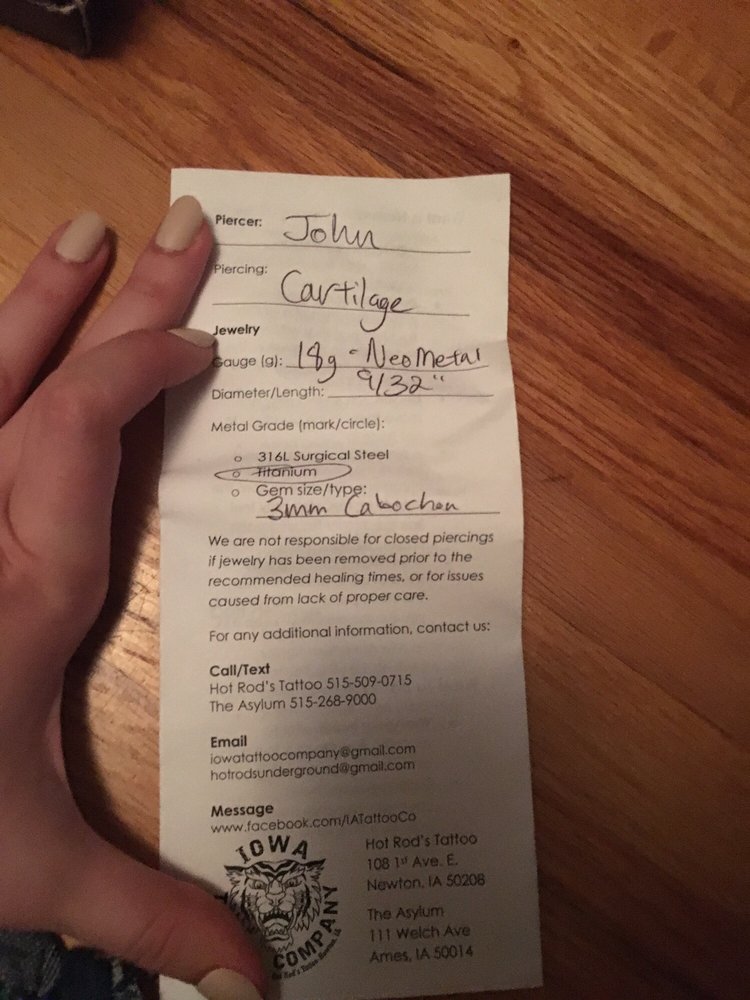 Piercer: John
Piercing: Cartilage
Jewelry
Gauge (g): 18g - NeoMetal
Diameter/Length: 9/32"
Metal Grade (mark/circle):
o 316L Surgical Steel
o Titanium
o Gem size/type:
3mm Cabochon
We are not responsible for closed piercings
if jewelry has been removed prior to the
recommended healing times, or for issues
caused from lack of proper care.
For any additional information, contact us:
Call/Text
Hot Rod's Tattoo 515-509-0715
The Asylum 515-268-9000
Email
iowatattoocompany@gmail.com
hotrodsunderground@gmail.com
Message
www.facebook.com/IATattooCo
IOWA
COMPANY
Hot Rod's Tattoo
108 1st Ave. E.
Newton, IA 50208
The Asylum
111 Welch Ave
Ames, IA 50014